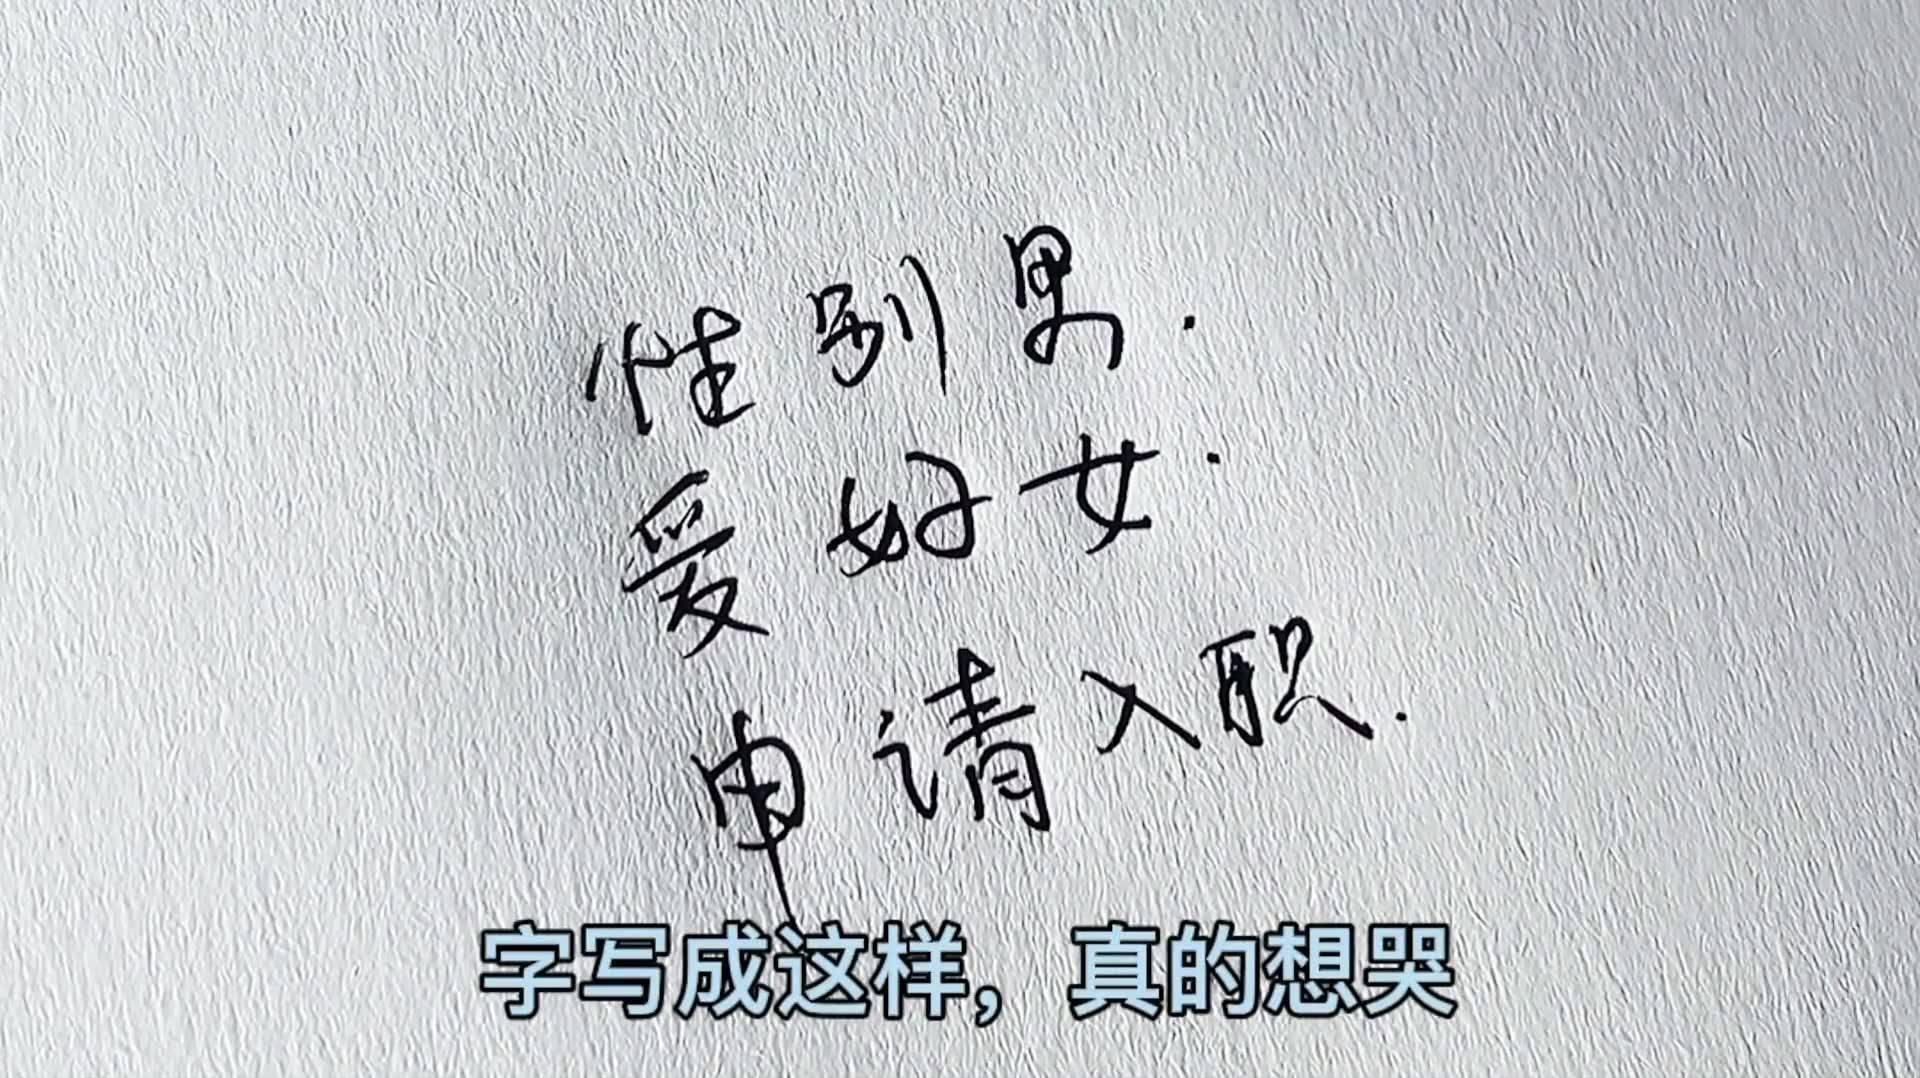 性别男.
爱好女.
申请入职.
字写成这样，真的想哭